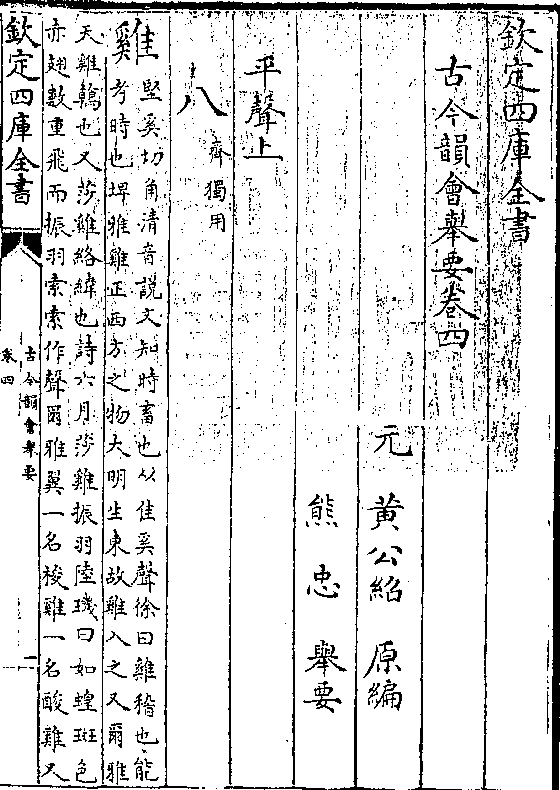 欽定四庫全書
古今韻會舉要卷四
元 黃公紹 原編
熊忠 舉要
平聲上
八 齊獨用
雞 堅奚切角清音說文知時畜也从隹奚聲徐曰雞稽也能
考時也埤雅雞正西方之物大明生東故雞入之又爾雅
天雞鶾也又莎雞絡緯也詩六月莎雞振羽陸璣曰如蝗斑色
赤翅數重飛而振羽索索作聲爾雅翼一名梭雞一名酸雞又
欽定四庫全書
古今韻會舉要
卷四
一